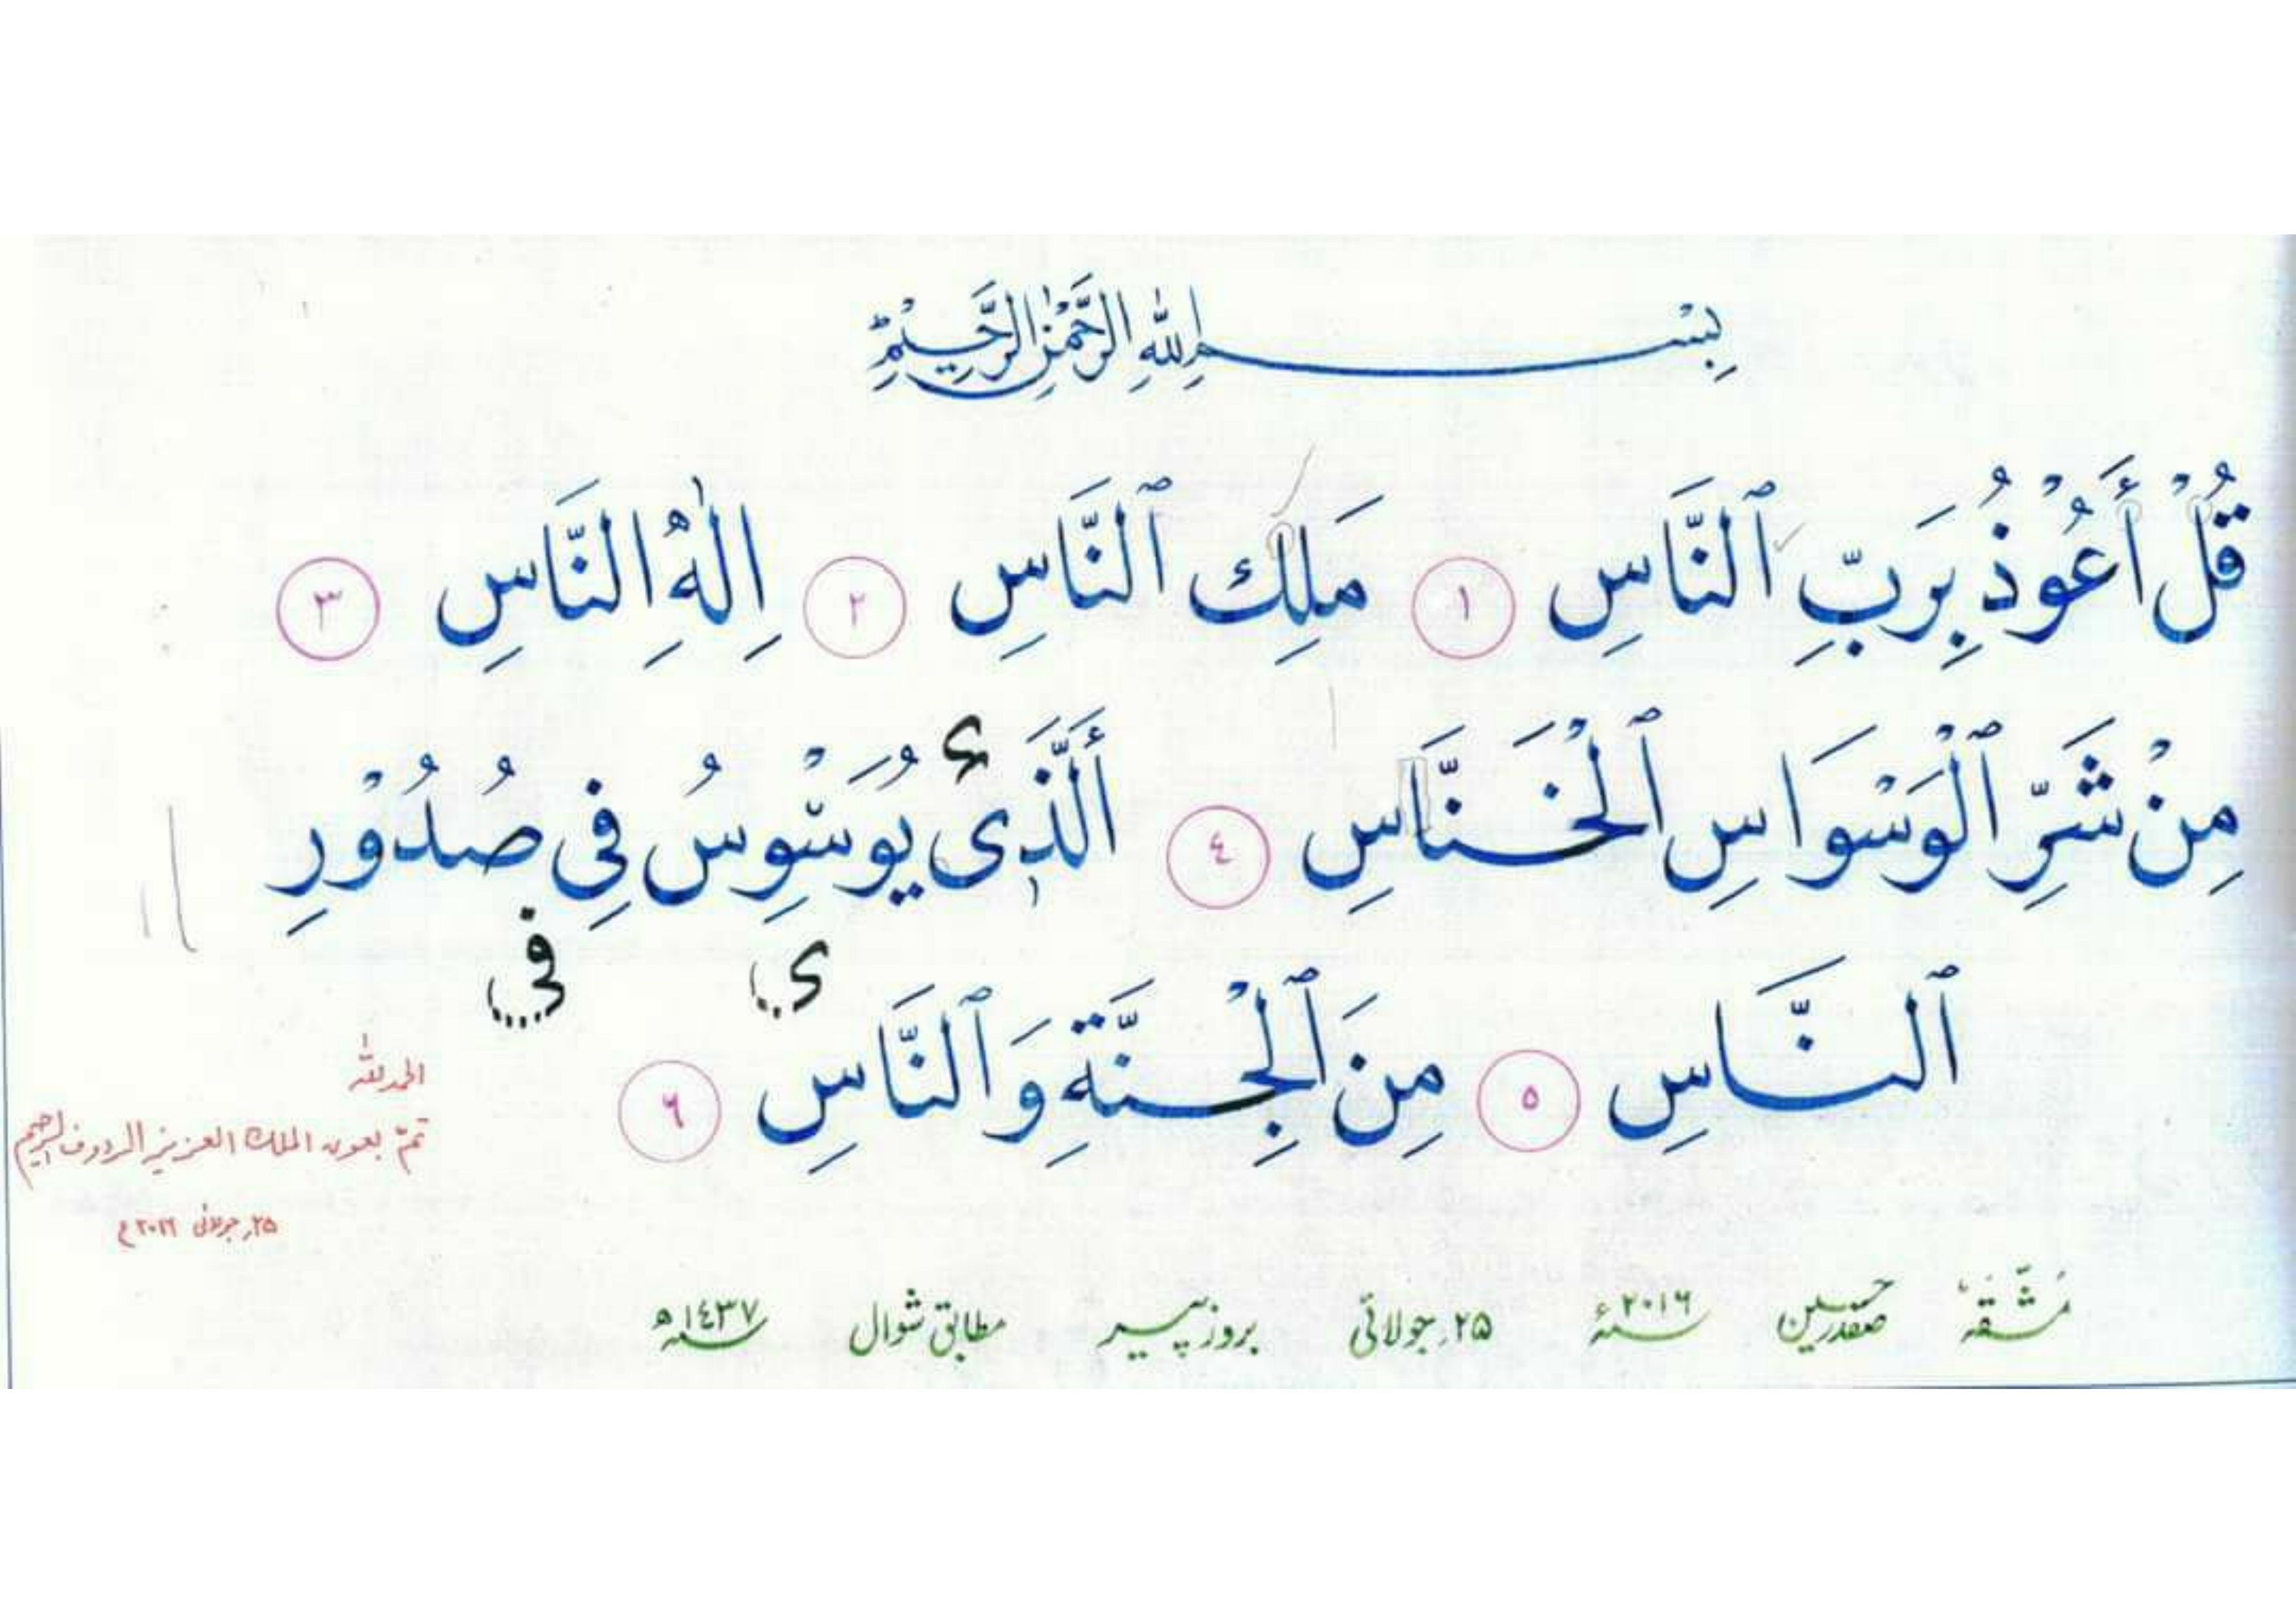 بِسْمِ اللهِ الرَّحْمٰنِ الرَّحِيْمِ
قُلْ أَعُوْذُ بِرَبِّ ٱلنَّاسِ ١ مَلِكِ ٱلنَّاسِ ٢ اِلٰهِ النَّاسِ ٣
مِنْ شَرِّ ٱلْوَسْوَاسِ ٱلْخَنَّاسِ ٤ أَلَّذِى يُوَسْوِسُ فِى صُدُوْرِ
ء
فى ى
ٱلنَّاسِ ٥ مِنَ ٱلْجِنَّةِ وَٱلنَّاسِ ٦
الحمد للہ
تمّ بعون الملك العزيز الرءوف الرحيم
۲۵؍ جولائی ۲۰۱۶ء
مشّقہٗ صفدر حسین ۲۰۱۶ سنہء ۲۵؍ جولائی بروز پیر مطابق شوال سنہ ۱٤۳۷ھ